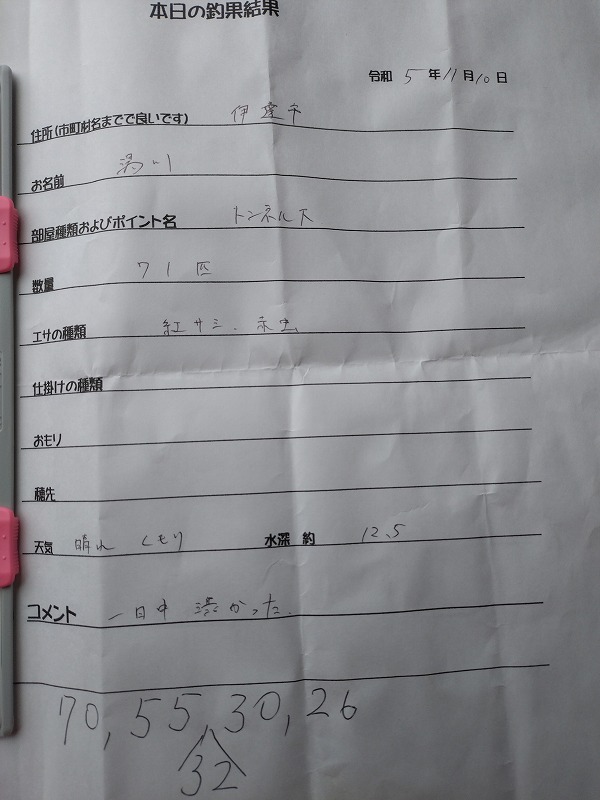 本日の釣果結果
令和 5 年 11 月 10 日
住所(市町村名まででで良いです) 伊達市
お名前 湯川
部屋種類およびポイント名 トンネル下
数量 71匹
エサの種類 紅サシ、赤虫
仕掛けの種類
おもり
穂先
天気 晴れ くもり 水深 約 12.5
コメント 一日中 渋かった.
70,55,30,26
32